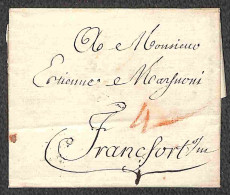 A Monsieur
Etienne Marsuoni
4
Francfort s/m